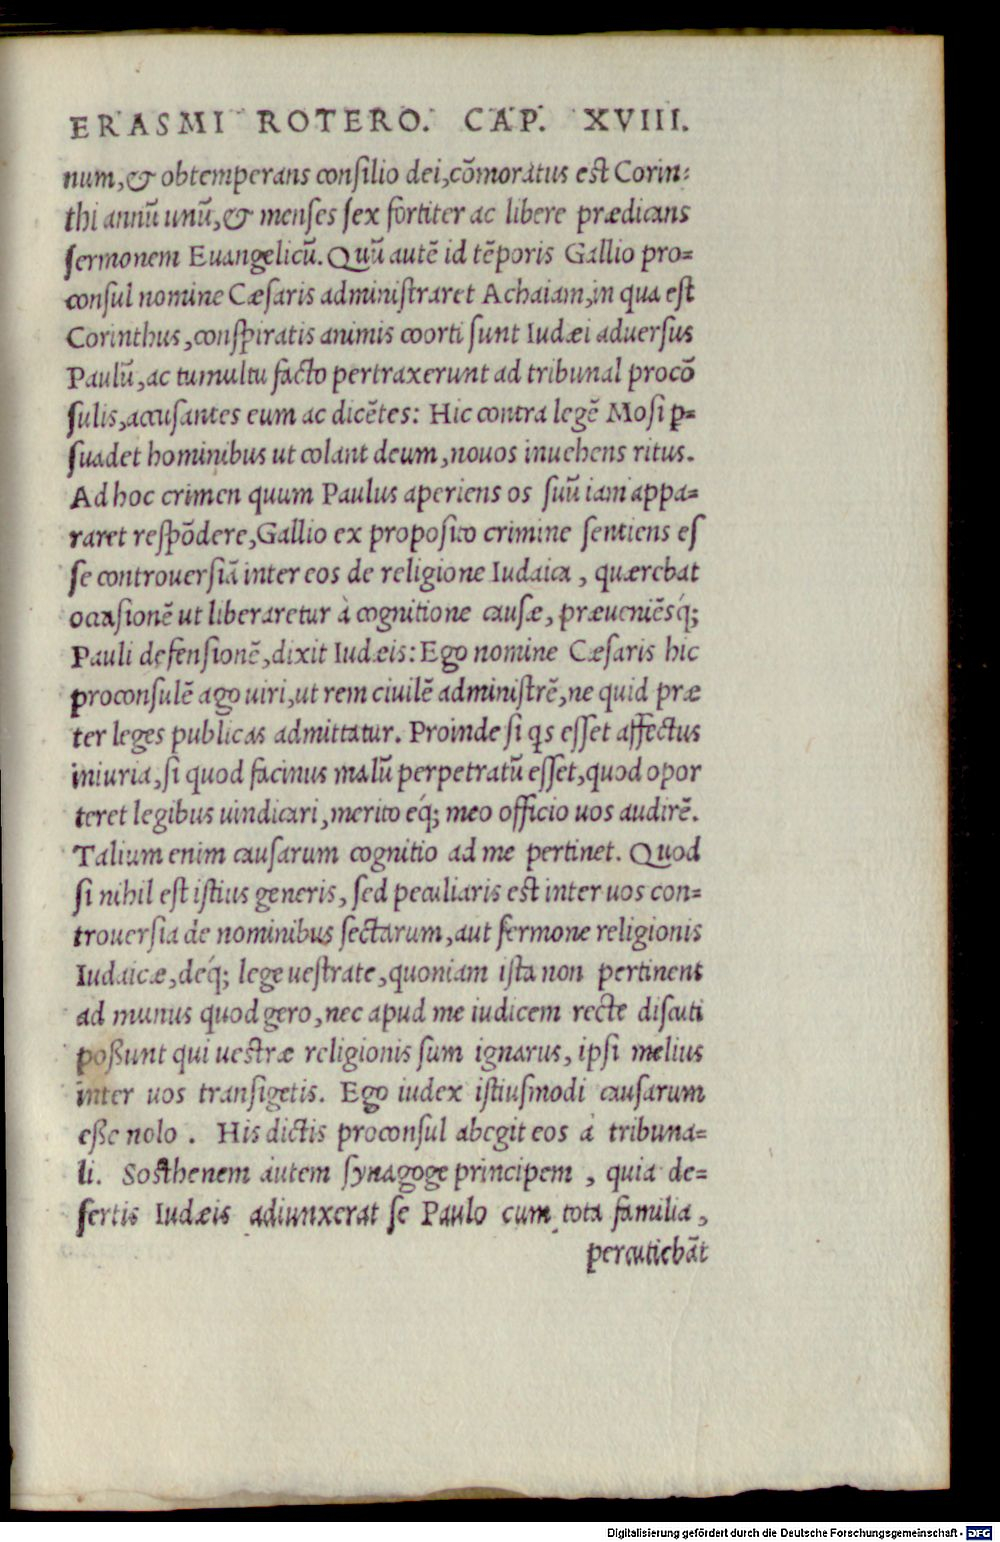 ERASMI ROTERO. CAP. XVIII.
num, & obtemperans conſilio dei, cōmoratus eſt Corin-
thi annū unū, & menſes ſex fortiter ac libere prædicans
ſermonem Euangelicū. Quū autē id tēporis Gallio pro-
conſul nomine Cæſaris adminiſtraret Achaiam, in qua eſt
Corinthus, conſpiratis animis coorti ſunt Iudæi aduerſus
Paulū, ac tumultu facto pertraxerunt ad tribunal procō
ſulis, accuſantes eum ac dicētes: Hic contra legē Moſi ꝑ-
ſuadet hominibus ut colant deum, nouos inuehens ritus.
Ad hoc crimen quum Paulus aperiens os ſuū iam appa-
raret reſpōdere, Gallio ex propoſito crimine ſentiens eſ
ſe controuerſiā inter eos de religione Iudaica, quærebat
occaſionē ut liberaretur à cognitione cauſæ, præueniēsq́;
Pauli defenſionē, dixit Iudæis: Ego nomine Cæſaris hic
proconſulē ago uiri, ut rem ciuilē adminiſtrē, ne quid præ
ter leges publicas admittatur. Proinde ſi qs eſſet affectus
iniuria, ſi quod facinus malū perpetratū eſſet, quod opor
teret legibus uindicari, merito eq́; meo officio uos audirē.
Talium enim cauſarum cognitio ad me pertinet. Quod
ſi nihil eſt iſtius generis, ſed peculiaris eſt inter uos con-
trouerſia de nominibus ſectarum, aut ſermone religionis
Iudaicæ, deq́; lege ueſtrate, quoniam iſta non pertinent
ad munus quod gero, nec apud me iudicem recte diſcuti
poßunt qui ueſtræ religionis ſum ignarus, ipſi melius
inter uos tranſigetis. Ego iudex iſtiuſmodi cauſarum
eße nolo. His dictis proconſul abegit eos à tribuna-
li. Soſthenem autem ſynagoge principem, quia de-
ſertis Iudæis adiunxerat ſe Paulo cum tota familia,
percutiebāt
Digitalisierung gefördert durch die Deutsche Forschungsgemeinschaft - DFG